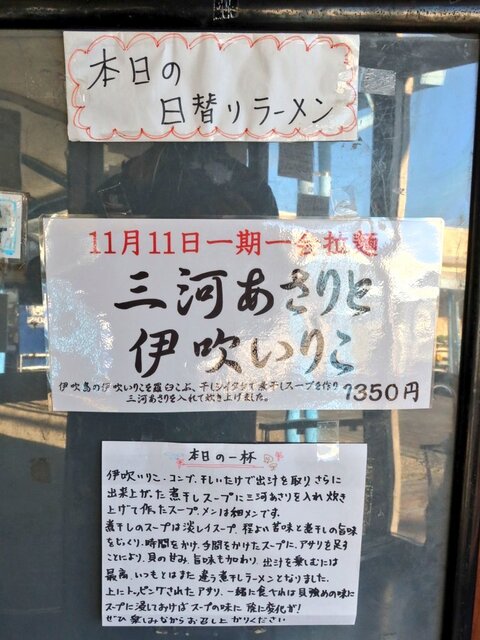 本日の
日替りラーメン
11月11日一期一会拉麺
三河あさりと
伊吹いりこ
伊吹島の伊吹いりこを羅臼こぶ、干しシイタケで煮干しスープを作り
三河あさりを入れて炊き上げました。
1350円
本日の一杯
伊吹いりこ・コンブ、干しいたけで出汁を取りさらに
出来上がった煮干しスープに三河あさりを入れ炊き
上げて作ったスープ。メンは細メンです。
煮干しのスープは淡レイスープ、程よい苦味と煮干しの旨味
をじっくり、時間をかけ、手間をかけたスープに、アサリを足す
ことにより、貝の甘み、旨味も加わり、出汁を楽しむには
最高、いつもとはまた違う煮干しラーメンとなりました。
上にトッピングされたアサリ、一緒に食べれば貝強めの味に
スープに浸しておけばスープの味に変化が!
ぜひ楽しみながらお召し上がりください